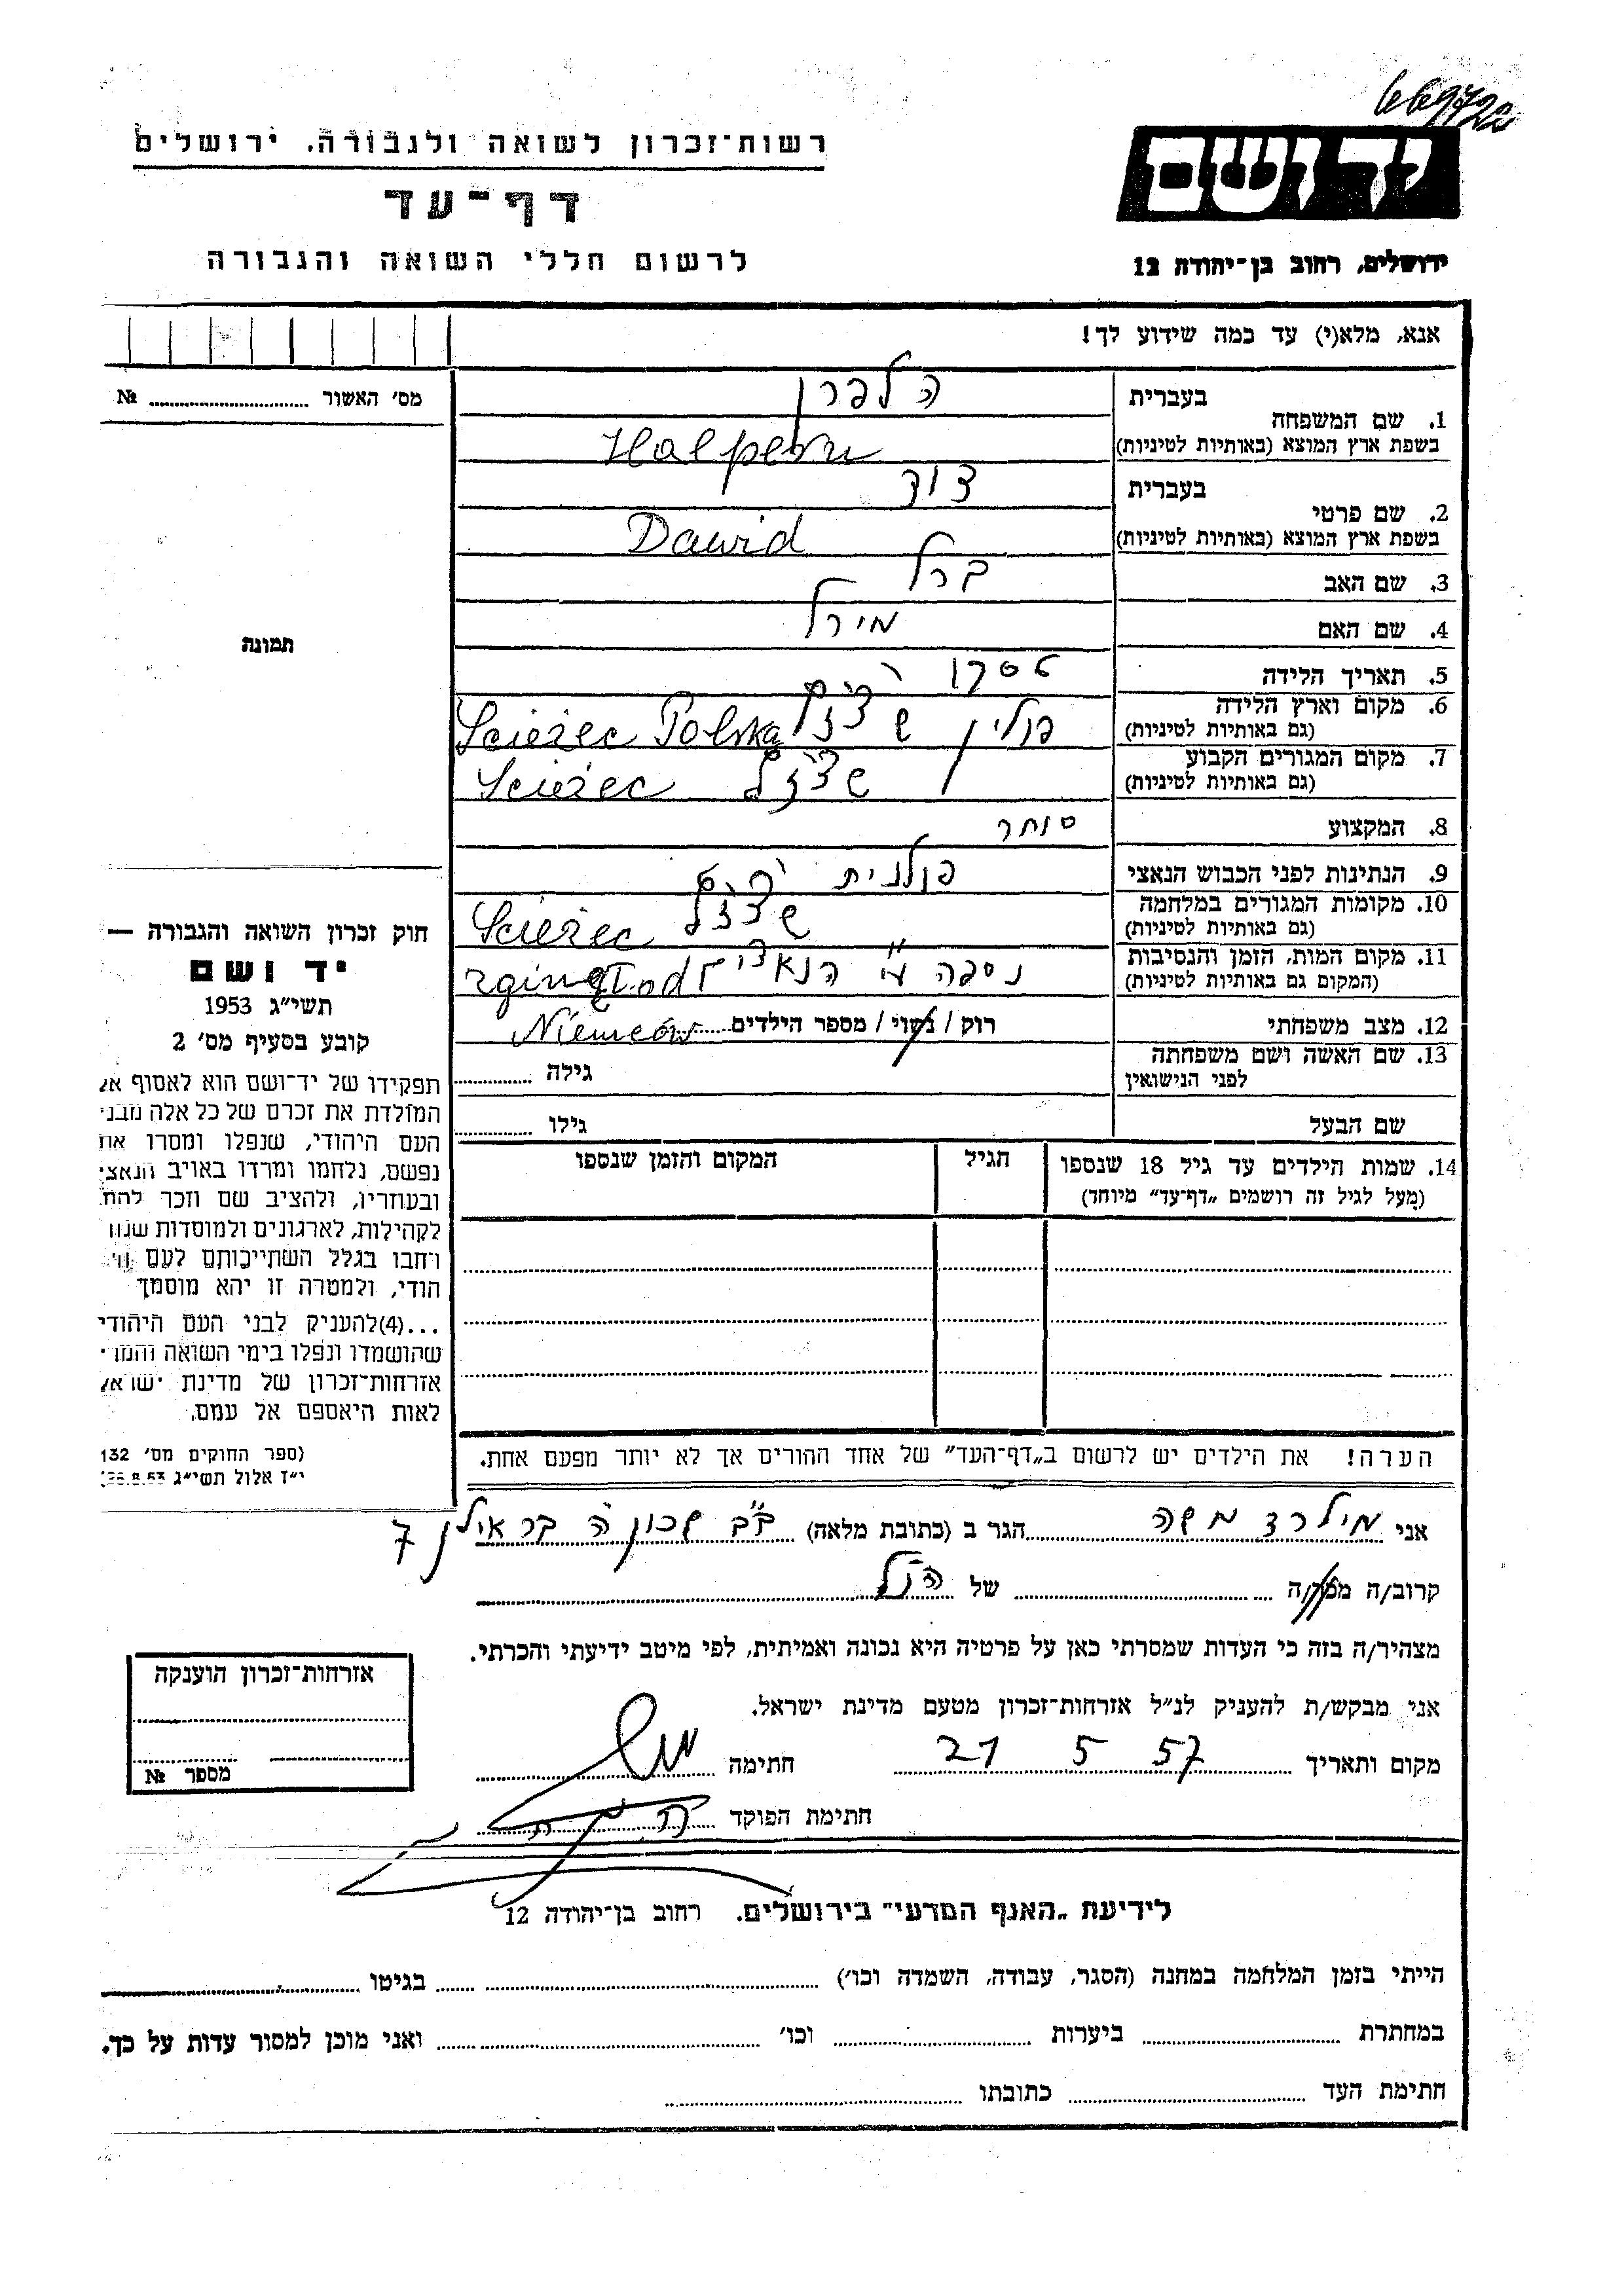 669722
רשות־זכרון לשואה ולגבורה. ירושלים
דף־עד
לרשום חללי השואה והגבורה
יד ושם
ירושלים, רחוב בן־יהודה 12
אנא, מלא(י) עד כמה שידוע לך!
מס׳ האשור № 
תמונה
1. שם המשפחה
בעברית הלפרן
בשפת ארץ המוצא (באותיות לטיניות) Halpern
2. שם פרטי
בעברית דוד
בשפת ארץ המוצא (באותיות לטיניות) Dawid
3. שם האב ברל
4. שם האם מירל
5. תאריך הלידה
6. מקום וארץ הלידה
(גם באותיות לטיניות) פולין Scieżec Polska
7. מקום המגורים הקבוע
(גם באותיות לטיניות) Scieżec
8. המקצוע סוחר
9. הנתינות לפני הכבוש הנאצי פולנית
10. מקומות המגורים במלחמה
(גם באותיות לטיניות) Scieżec
11. מקום המות, הזמן והנסיבות
(המקום גם באותיות לטיניות) נספה ע״י הנאצי
12. מצב משפחתי רוק/נשוי/מספר הילדים Niemców
13. שם האשה ושם משפחתה
לפני הנישואין גילה
שם הבעל גילו
14. שמות הילדים עד גיל 18 שנספו
(מעל לגיל זה רושמים „דף־עד״ מיוחד)
הגיל
המקום והזמן שנספו
הערה! את הילדים יש לרשום ב„דף־העד״ של אחד ההורים אך לא יותר מפעם אחת.
חוק זכרון השואה והגבורה —
יד ושם
תשי״ג 1953
קובע בסעיף מס׳ 2
תפקידו של יד־ושם הוא לאסוף אל
המולדת את זכרם של כל אלה מבני
העם היהודי, שנפלו ומסרו את
נפשם, נלחמו ומרדו באויב הנאצי
ובעוזריו, ולהציב שם וזכר להם,
לקהילות, לארגונים ולמוסדות שנח
רחבו בגלל השתייכותם לעם הי
הודי, ולמטרה זו יהא מוסמך
...(4)להעניק לבני העם היהודי
שהושמדו ונפלו בימי השואה והמרי
אזרחות־זכרון של מדינת ישראל
לאות היאספם אל עמם.
(ספר החוקים מס׳ 132
י״ז אלול תשי״ג 28.8.53)
אני מילרד משה הגר ב (כתובת מלאה) ב״ב שכון ה בר אילן 7
קרוב/ה מכר/ה של הנ״ל
מצהיר/ה בזה כי העדות שמסרתי כאן על פרטיה היא נכונה ואמיתית, לפי מיטב ידיעתי והכרתי.
אני מבקש/ת להעניק לנ״ל אזרחות־זכרון מטעם מדינת ישראל.
מקום ותאריך 21 5 57 חתימה
חתימת הפוקד
אזרחות־זכרון הוענקה
מספר №
לידיעת „האגף המדעי״ בירושלים. רחוב בן־יהודה 12
הייתי בזמן המלחמה במחנה (הסגר, עבודה, השמדה וכו׳) בגיטו
במחתרת ביערות וכו׳ ואני מוכן למסור עדות על כך.
חתימת העד כתובתו